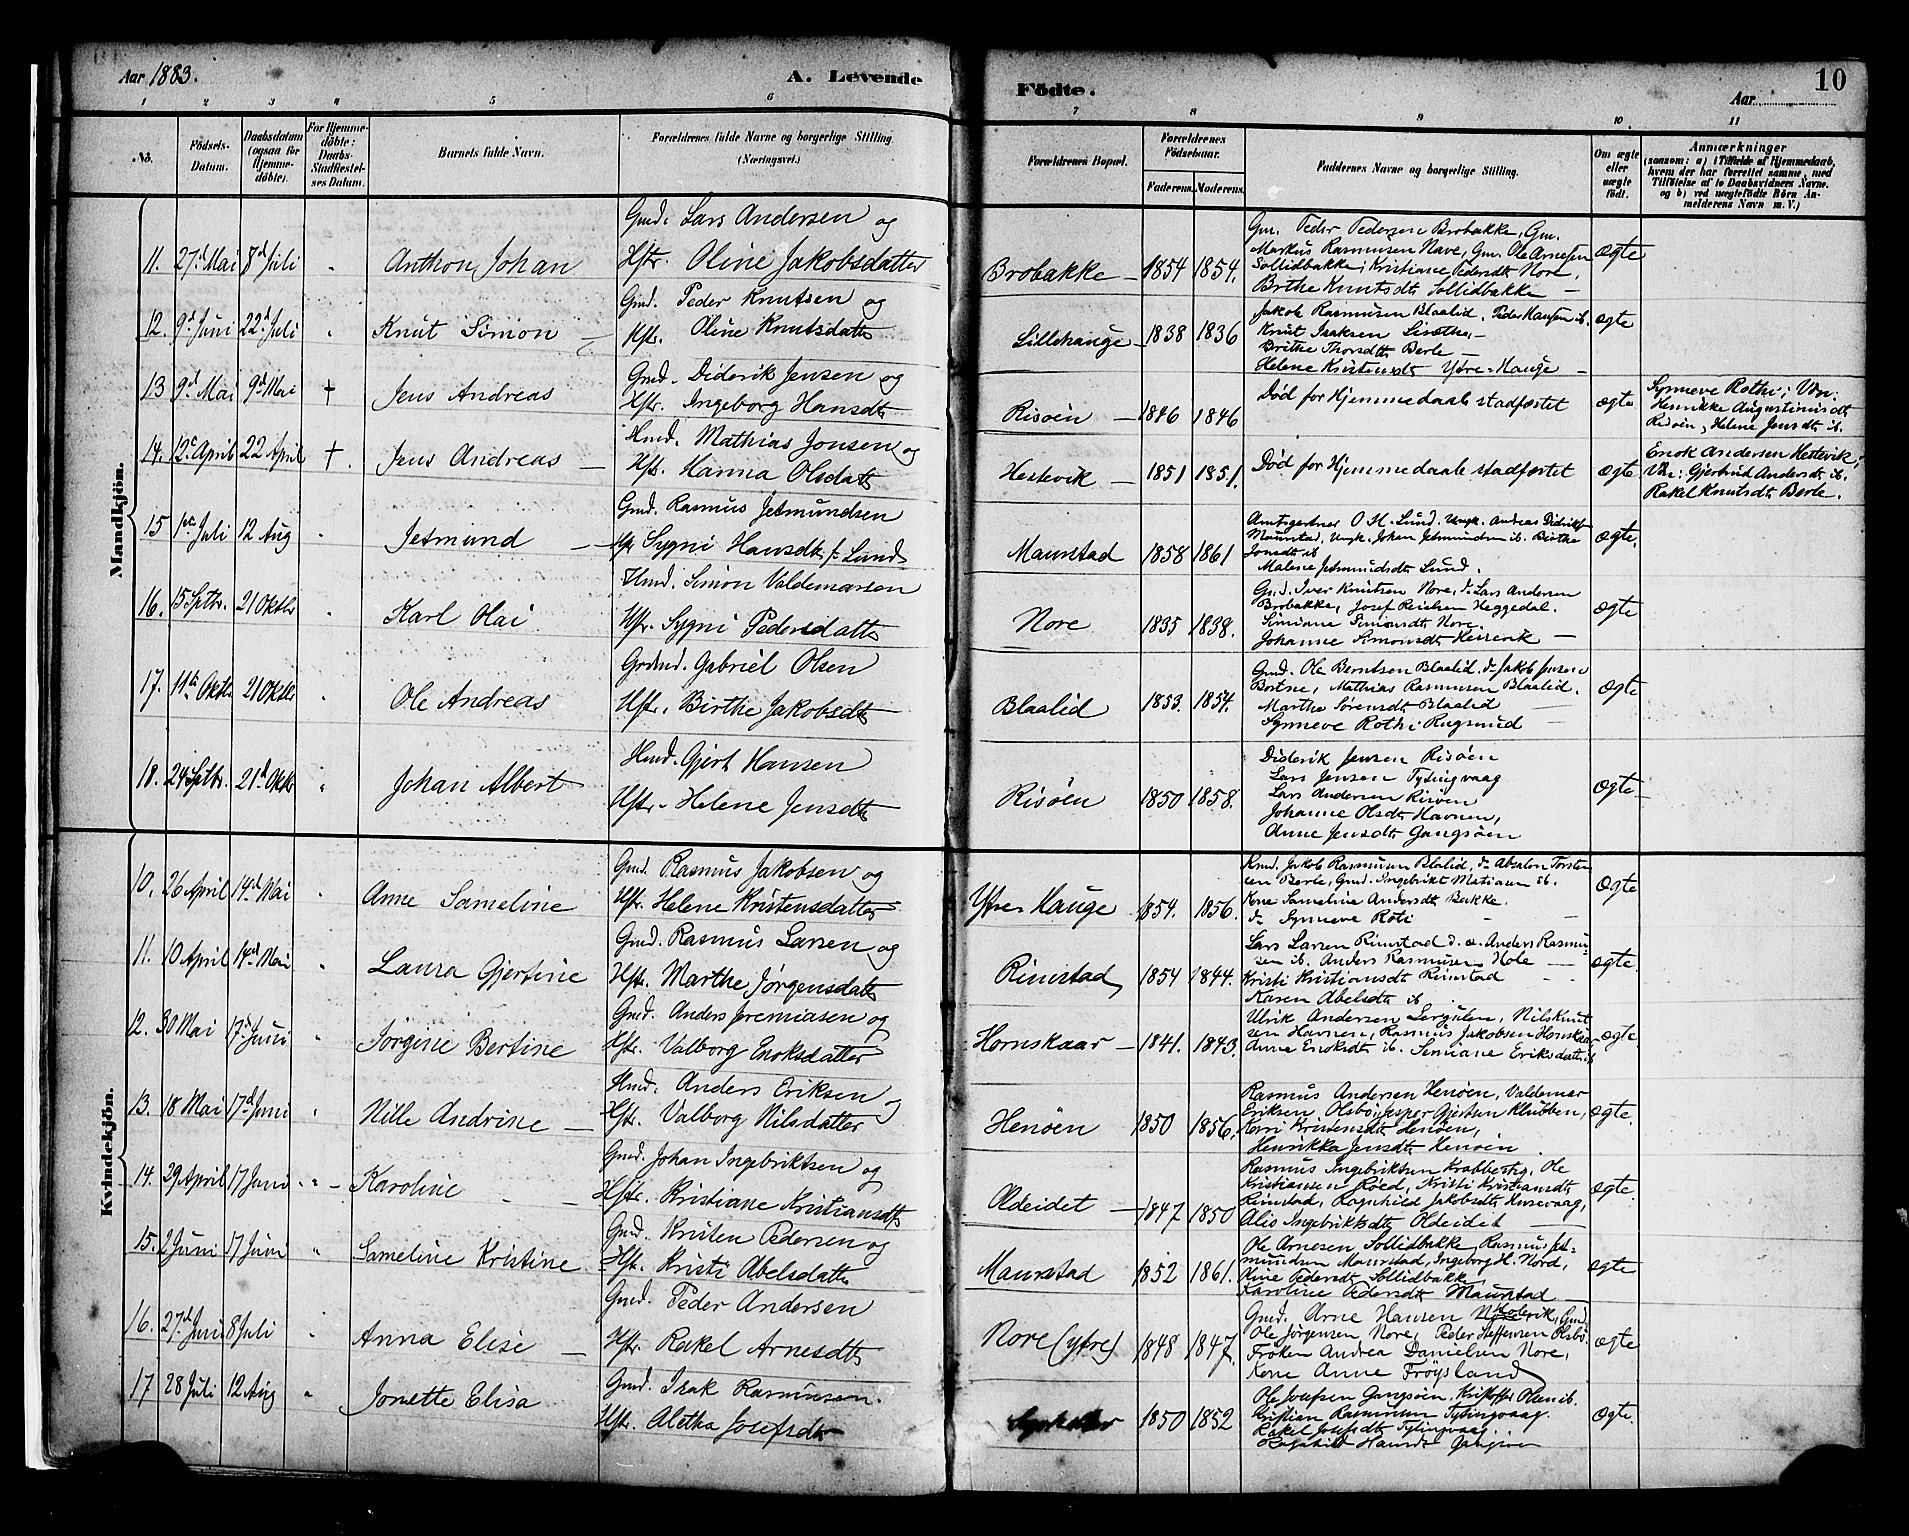 Aar 1883.
A. Levende
Födte.
10
Aar
1 2 3 4 5 6 7 8 9 10. 11
No.
Födsels-Datum.
Daabsdatum (ogsaa for Hjemmedöbte).
For Hjemmedöbte: Daabs-Stadfæstelses Datum.
Barnets fulde Navn.
Forældrenes fulde Navne og borgerlige Stilling (Næringsvei.)
Forældrenes Bopæl.
Forældrenes Födselsaar.
Faderens. Moderens.
Faddernes Navne og borgerlige Stilling.
Om ægte eller uægte födt.
Anmærkninger
(saasom: a) i Tilfælde af Hjemmedaab, hvem der har forrettet samme, med Tilföielse af to Daabsvidners Navne, og b) ved uægtefödte Börn Anmelderens Navn m. V.)
Mandkjön.
Gmd. Lars Andersen og
11. 27d Mai 8d Juli " Anthon Johan Hstr. Oline Jakobsdatter Brobakke 1854 1854. ægte
Gm. Peder Pedersen Brobakke, Gm.
Markus Rasmusen Nave, Gm. Ole Arnesen
Sollidbakke, Kristiane Pedersdt Nore,
Brithe Knutsdt Sollidbakke
Gmd. Peder Knutsen og
12. 9d Juni 22d Juli " Knut Simon Hstr. Oline Knutsdatt Lillehauge 1838 1836 ægte
Jakob Rasmusen Blaalid, Peder Hansen ib.
Knut Isaksen
Brithe Thorsdt Berle
Helene Kristensdt Ytre-Hauge
Gmd. Diderik Jensen og
13 9d Mai 9d Mai + Jens Andreas Hstr. Ingeborg Hansdt Risöen 1846 1846 Död for Hjemmedaab stadfæstet ægte
Synneve Rothi; Vdn:
Henrikke Augustinusdt
Risöen, Helene Jensdt ib.
Hmd. Mathias Jonsen og
14. 12 April 22 April +. Jens Andreas Hstr. Hanna Olsdatt Hestevik 1851 1851. Död for Hjemmedaab stadfæstet ægte
Enok Andersen Hestevik;
Vdn: Gjertrud Andersdt ib.
Rakel Knutsdt Berle.
Gmd. Rasmus Jetmundsen
15 1ste Juli 12 Aug " Jetmund Sygni Hansdt f. Lund Maurstad 1858 1861 ægte.
Amtsgartner O. H. Lund. Ungk. Andreas Didriksen
Maurstad, Ungk. Johan Jetmundsen ib. Birthe
Jonsdt ib
Malene Jetmundsdt Lund.
Hmd. Simon Valdemarsen
16. 15 Sptbr. 21 Oktbr " Karl Olai Hstr. Sygni Pedersdatt Nore 1835 1838. ægte
Gmd. Iver Knutsen Nore, d. Lars Andersen
Brobakke, Josef Heggedal.
Simiane Simonsdt Nore.
Johanne Simonsdt
Grdmd. Gabriel Olsen
17. 11te Oktbr 21 Oktbr " Ole Andreas Hstr. Birthe Jakobsdt Blaalid 1853. 1854. ægte
Gmd. Ole Berntsen Blaalid. do Jakob Jensen
Bortne, Mathias Rasmusen Blaalid.
Marthe Sörensdt Blaalid
Synneve Rothi Rugsund
Hmd. Gjert Hansen
18. 24 Sptbr. 21d Oktbr " Johan Albert Hstr. Helene Jensdt Risöen 1850 1858. ægte
Diderik Jensen Risöen
Lars Jensen Tytingvaag
Lars Andersen Risöen
Johanne Olsdt Havnen,
Anne Jensdt Gangsöen
Kvindekjön.
Gmd. Rasmus Jakobsen og
10. 26 April 14d Mai " Anne Sameline Hstr. Helene Kristensdatter Ytre-Hauge 1854. 1856. ægte
Jakob Rasmusen Blaalid, do Absalon Torstensen
Berle, Gmd. Ingebrikt Matiasen ib.
Kone Sameline Andersdt Bakke.
do Synneve Roti
Gmd. Rasmus Larsen og
11. 10 April 14d Mai " Laura Gjertine Hstr. Marthe Jörgensdatt Rimstad 1854 1844. ægte.
Lars Larsen Rimstad Anders Rasmussen
ib. Anders Rasmusen Hole
Kristi Kristiansdt Rimstad
Karen Abelsdt ib
Gmd. Anders Jeremiasen og
12. 30 Mai 17d Juni " Jörgine Bertine Hstr. Valborg Enoksdatter Hornskaar 1841. 1843. ægte
Ulrik Andersen Nils Knutsen
Havnen, Rasmus Jakobsen Hornskaar
Anne Enoksdt ib. Simiane Eriksdatt ib
Hmd. Anders Eriksen og
13. 18 Mai 17d Juni " Nille Andrine Hstr. Valborg Nilsdatter Henöen 1850 1856. ægte.
Rasmus Andersen Henöen, Valdemar
Eriksen Olsbö, Jesper Gjertsen Klubben,
Kristensdt Henöen,
Henrikka Jensdt Henöen
Gmd. Johan Ingebriktsen og
14. 29 April 17 Juni " Karoline Hstr. Kristiane Kristiansdt Oldeidet 1847 1850 ægte.
Rasmus Ingebriktsen Krabbestig, Ole
Kristiansen Röed, Kristi Kristiansdt
Rimstad, Ragnhild Jakobsdt Husevaag,
Alis Ingebriktsdt Oldeidet
Gmd. Kristen Pedersen og
15. 2 Juni 17 Juni " Sameline Kristine Hstr. Kristi Abelsdatt Maurstad 1852 1861. ægte
Ole Arnesen Sollidbakke, Rasmus Jetmundsen
Maurstad, Ingeborg H. Nord,
Oline Pedersdt Sollidbakk
Karoline Pedersdt Maurstad
Gmd. Peder Andersen
16. 27d Juni 8 Juli " Anna Elise Hstr. Rakel Arnesdt Nore (ytre) 1848 1847. ægte
Gmd. Arne Hansen Gmd
Ole Jörgensen Nore, Peder Steffensen Olsbö
Fröken Andrea Danielsen Nore,
Kone Anne Fröysland
Gmd. Isak Rasmusen.
17 28 Juli 12 Aug " Jonette Elisa Hstr. Aletha Josefsdt 1850 1852 ægte.
Ole Josefsen Gangsöen, Kristoffer Olsen ib.
Kristian Rasmusen Tytingvaag.
Rakel Josefsdt Tytingvaag.
Ragnhild Hansdt Gangsöen